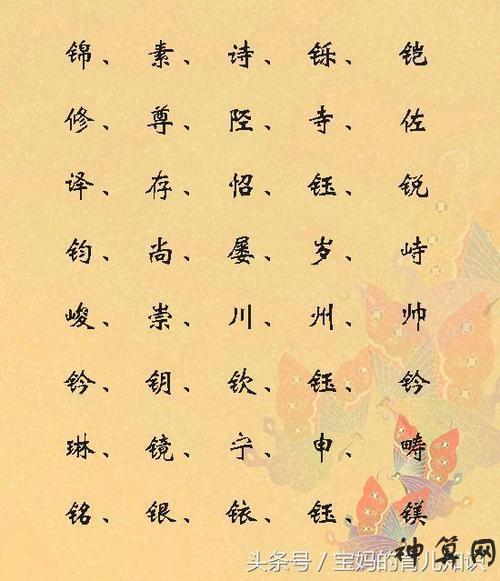 锦、素、诗、铄、铠
修、尊、陞、寺、佐
译、存、怊、钰、锐
钧、尚、屡、岁、峙
峻、崇、川、州、帅
钤、钥、钦、钰、钤
琳、镜、宁、申、畴
铭、银、铱、钰、镁
神算网
头条号/宝妈的育儿知识